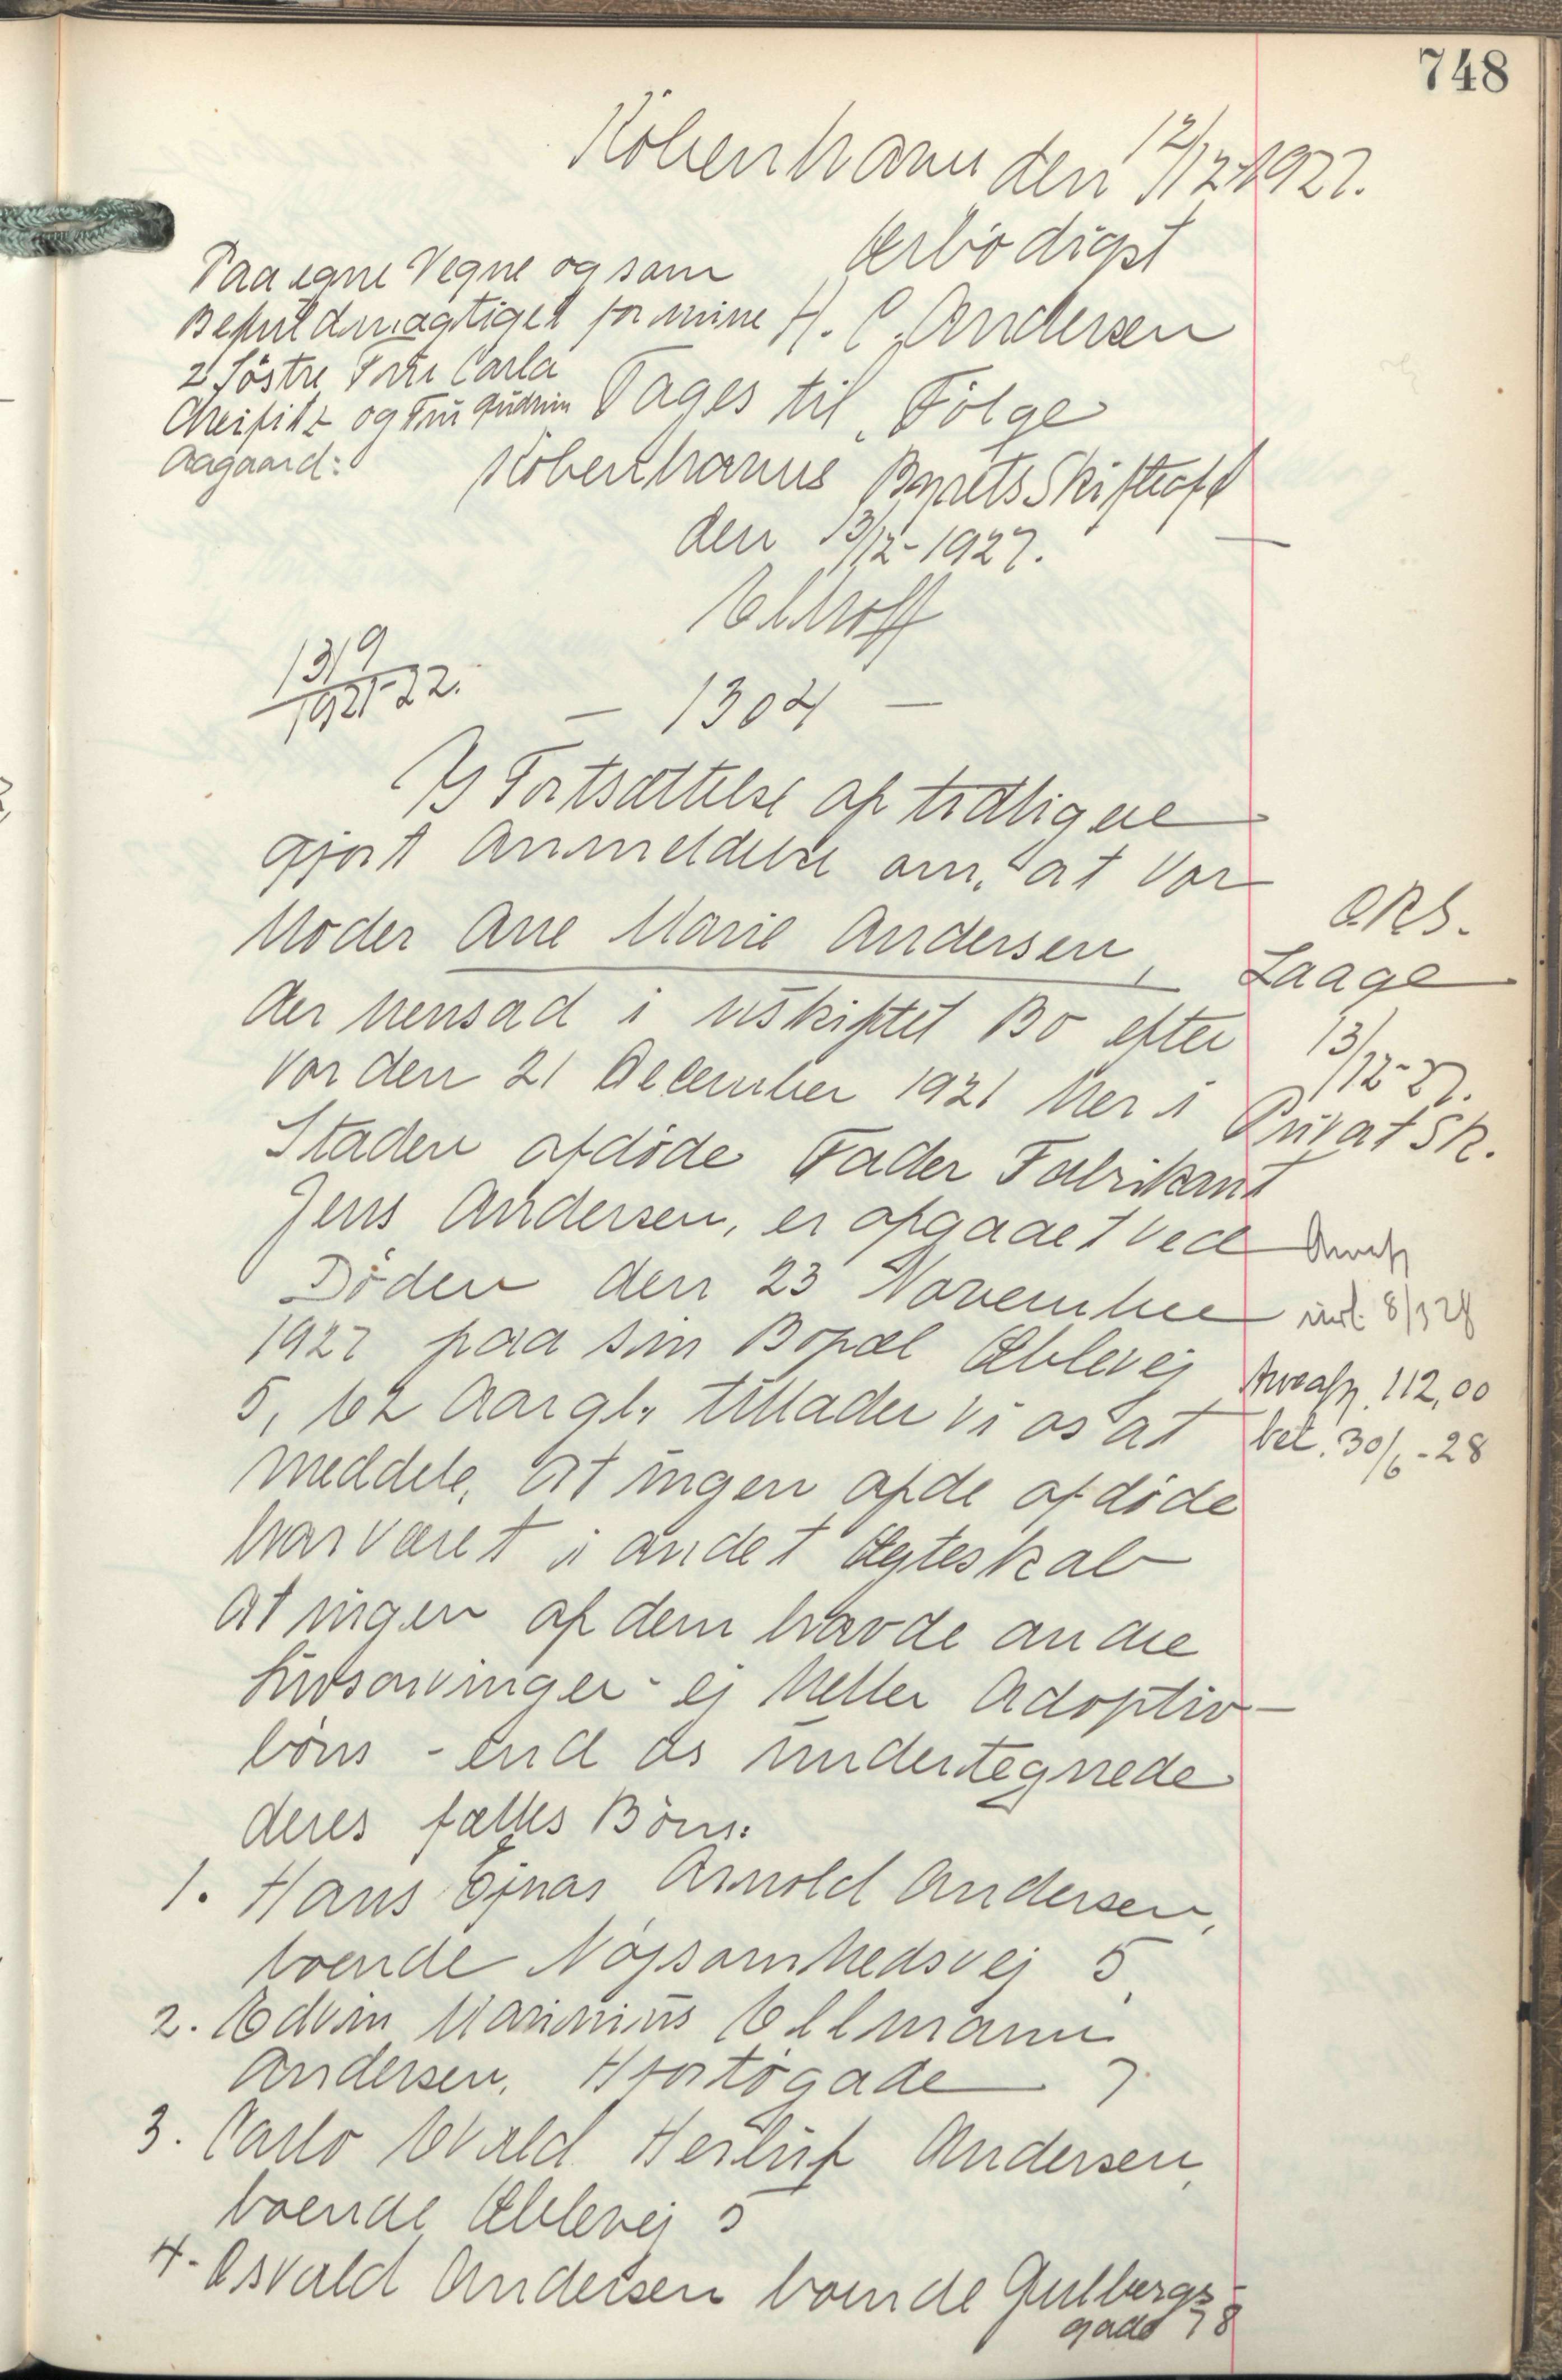 748
København den 12/12-1927.
Ærbødigst
Paa egne Vegne og som
Befuldmægtiget for mine
2 Söstre Fru Carla
Cheifitz og Fru Gudrun
Aagaard:
H. C. Andersen
Tages til Fölge
Köbenhavns Byrets Skifteafd
den 13/12-1927.
1319
1921-22.
- 1304 -
I Fortsættelse af tidligere
gjort Anmeldelse om, at vor
Moder Ane Marie Andersen,
der hensad i uskiftet Bo efter
vor den 21 December 1921 her i
Staden afdöde Fader Fabrikant
Jens Andersen, er afgaaet ved
Döden den 23 November
1927 paa sin Bopæl Æblevej
5, 62 Aar gl., tillader vi os at
meddele, at ingen af de afdöde
har været i andet Ægteskab
at ingen af dem havde andre
Livsarvinger - ej heller Adoptiv-
börn - end os undertegnede
deres fælles Börn:
1. Hans Ejnar Arnold Andersen,
boende Nöjsomhedsvej 5,
2. Edvin Marinius Ellmann
Andersen, Hjortögade 7
3. Carlo Evald Herluf Andersen,
boende Æblevej 5
4. Osvald Andersen boende Gulbergs-
gade 78
Laage
13/12-27.
Privat Sk.
indl. 8/3 28
Arveafg. 112,00
bet. 30/6-28